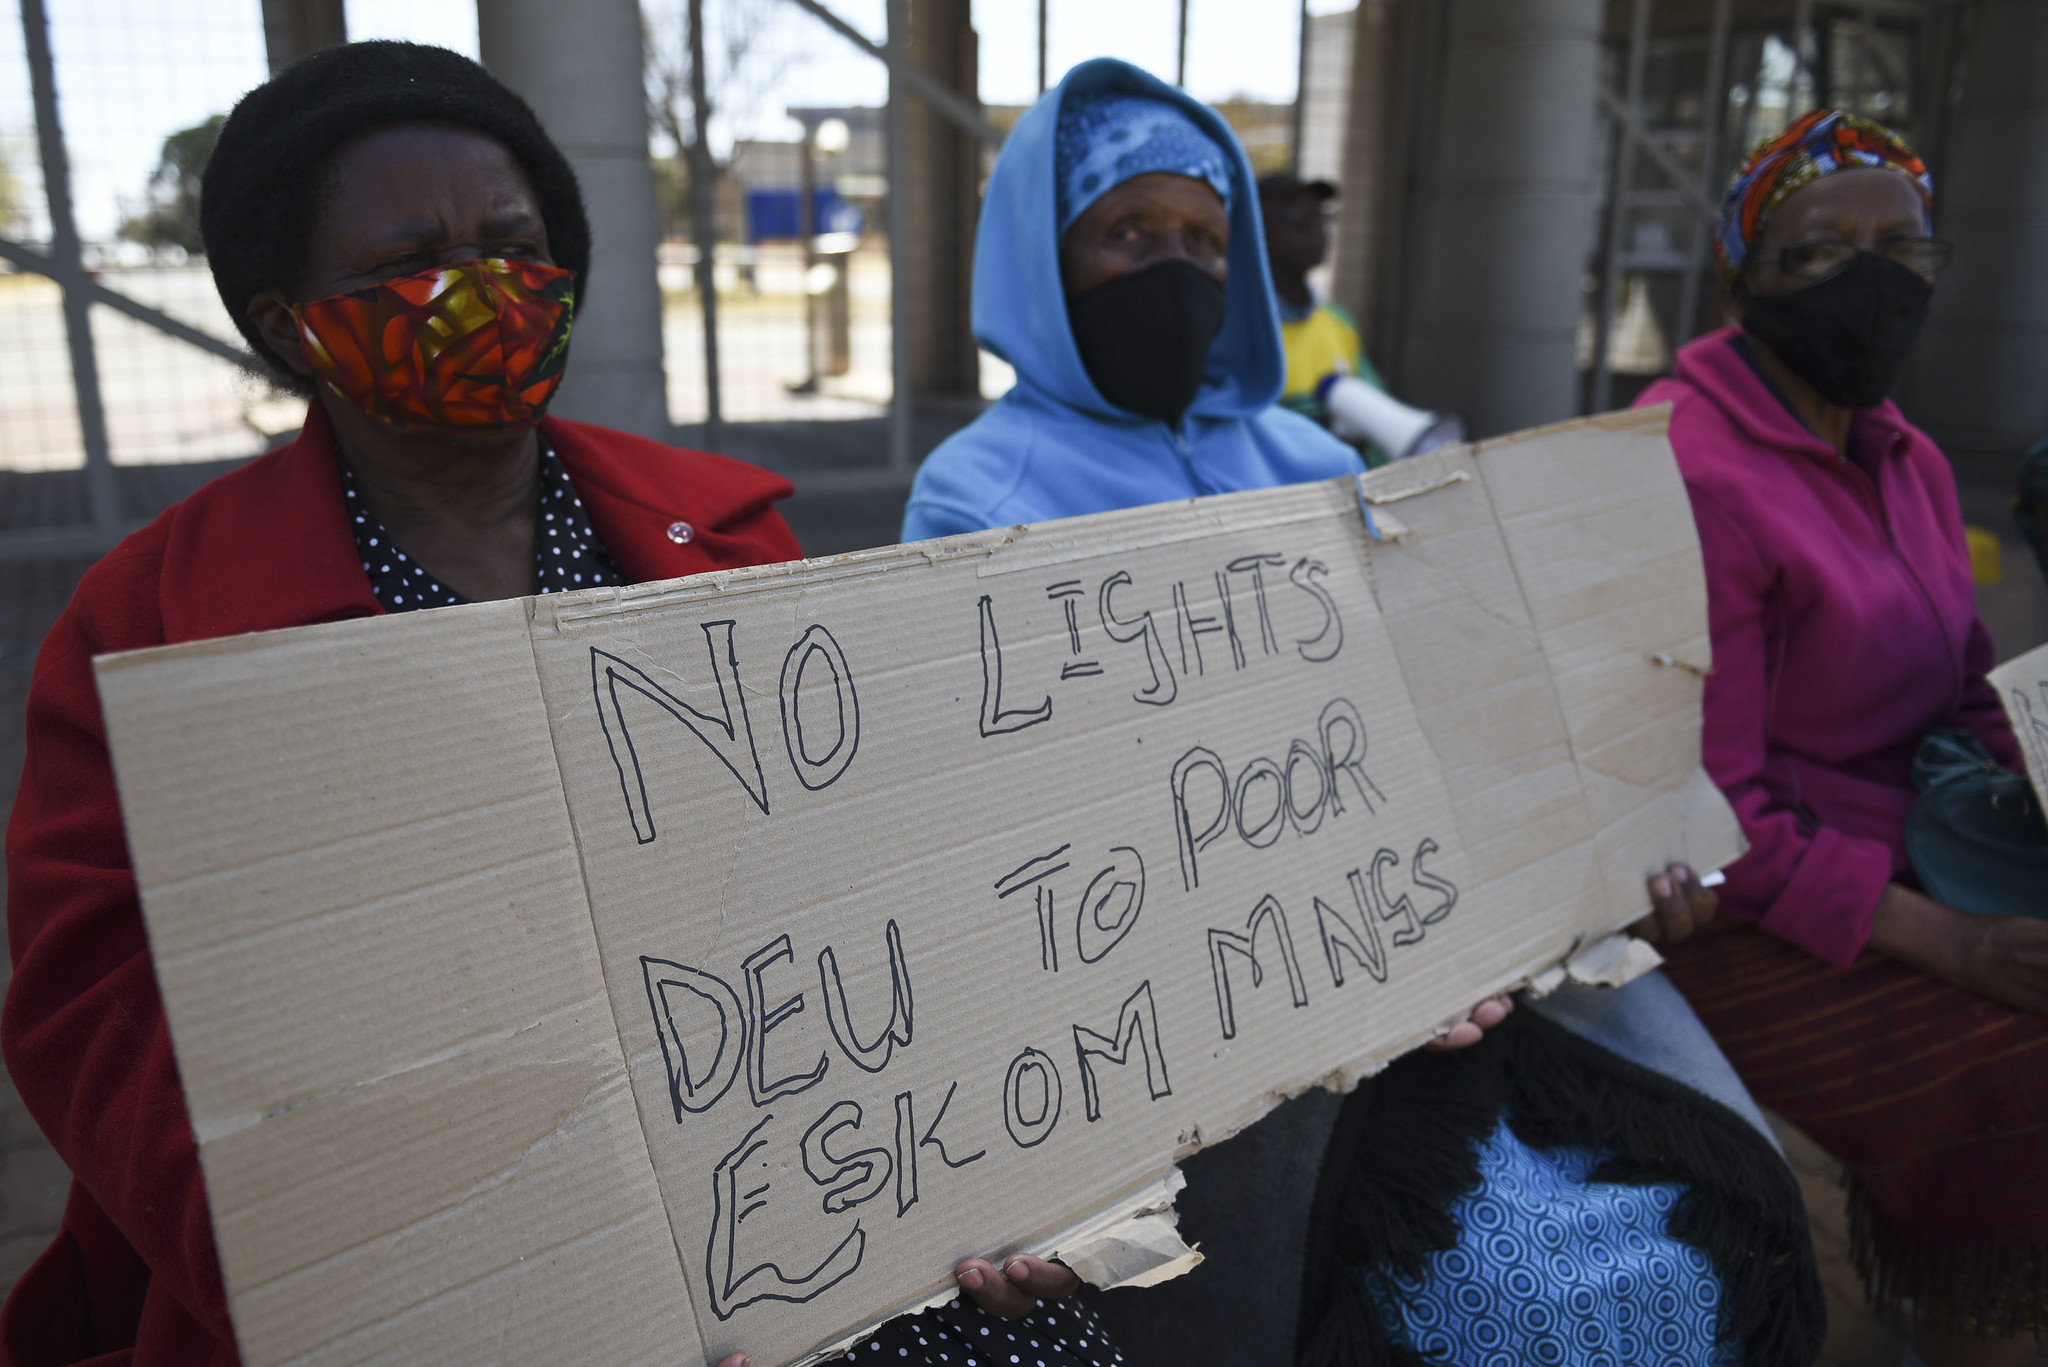 NO LIGHTS
DEU TO POOR
ESKOM MNGS